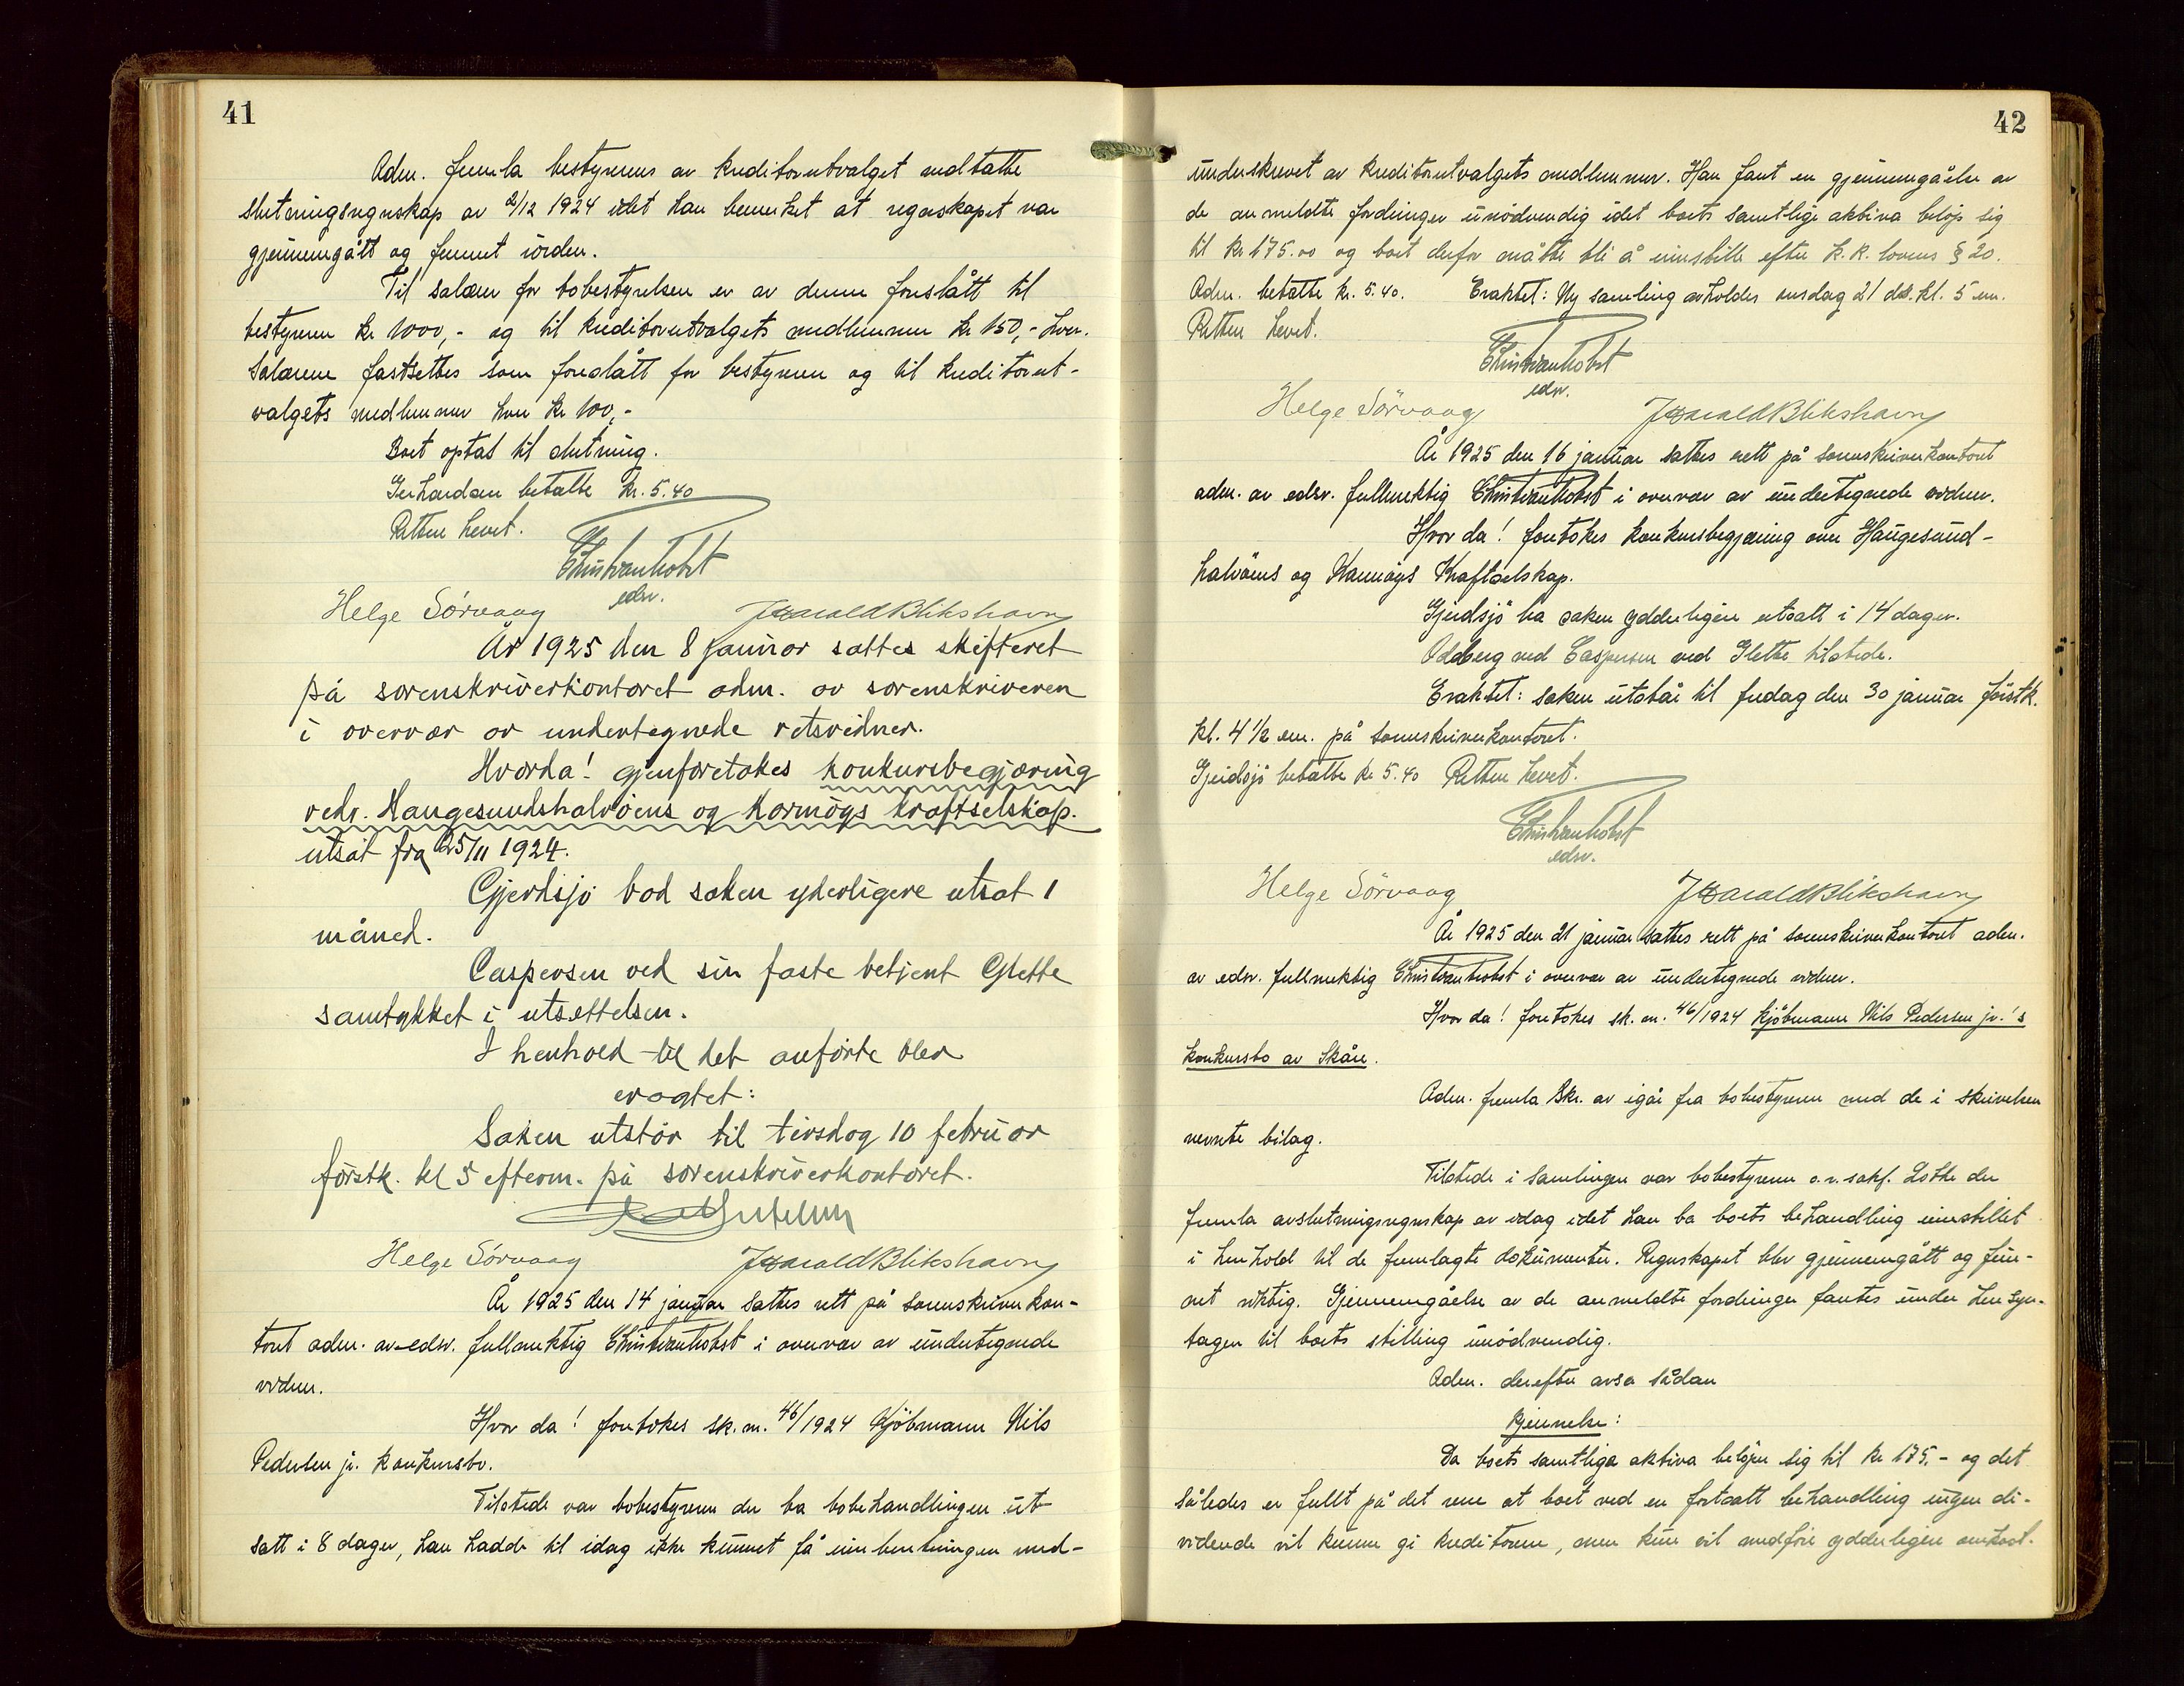 41
Adm. fremla bestyrerens av kreditorutvalget medtatte
slutningsregnskap av 2/12 1924 idet han bemerket at regnskapet var
gjennemgått og funnet iorden.
Til salær for bobestyrelsen er av denne foreslått til
bestyreren kr 1000,- og til kreditorutvalgets medlemmer kr 150,- hver.
Salærene fastsettes som foreslått for bestyreren og til kreditorut-
valgets medlemmer hver kr 100,-
Boet optas til slutning.
Gerhardsen betalte kr. 5.40
Retten hevet.
Christian Holst
edsv.
Helge Sörvaag Harald Blikshavn
År 1925 den 8 januar sattes skifteret
på sorenskriverkontoret adm. av sorenskriveren
i overvær av undertegnede retsvidner.
Hvorda! gjenforetokes konkursbegjæring
vedr. Haugesundshalvöens og Karmöys kraftselskap.
utsat fra 25/11 1924.
Gjerdsjö bad saken yderligere utsat 1
måned.
Caspersen ved sin faste betjent Glette
samtykket i utsettelsen.
I henhold til det anförte blev
eragtet:
Saken utstår til tirsdag 10 februar
förstk. kl 5 efterm. på sorenskriverkontoret.
Helge Sörvaag Harald Blikshavn
År 1925 den 14 januar sattes rett på sorenskriverkon-
toret adm. av edsv. fullmektig Christian Holst i overvær av undertegnede
vidner.
Hvor da! foretokes sk. nr. 46/1924 Kjöbmann Nils
Pedersen jr. konkursbo.
Tilstede var bobestyreren der ba bobehandlingen ut-
satt i 8 dager, han hadde til idag ikke kunnet få innberetningen med-
42
underskrevet av kreditorutvalgets medlemmer. Han fant en gjennemgåelse av
de anmeldte fordringer unödvendig idet boets samtlige aktiva belöp sig
til kr 175.00 og boet derfor måtte bli å innstille efter k.k. lovens § 20.
Adm. betalte kr. 5.40. Eraktet: Ny samling avholdes onsdag 21 ds. kl. 5 em.
Retten hevet.
Christian Holst
edsv.
Helge Sörvaag Harald Blikshavn
År 1925 den 16 januar sattes rett på sorenskriverkontoret
adm. av edsv. fullmektig Christian Holst i overvær av undertegnede vidner.
Hvor da! foretokes konkursbegjæring over Haugesund-
halvöens og Karmöys Kraftselskap.
Gjerdsjö ba saken ydderligere utsatt i 14 dager.
Oddberg ved Caspersen ved Glette tilstede.
Eraktet: saken utstår til fredag den 30 januar förstk.
kl. 4 1/2 em. på sorenskriverkontoret.
Gjerdsjö betalte kr 5.40 Retten hevet.
Christian Holst
edsv.
Helge Sörvaag Harald Blikshavn
År 1925 den 21 januar sattes rett på sorenskriverkontoret adm.
av edsv. fullmektig Christian Holst i overvær av undertegnede vidner.
Hvor da! foretokes sk. nr. 46/1924 Kjöbmann Nils Pedersen jr.'s
konkursbo av Skåre.
Adm. fremla Skr. av igår fra bobestyreren med de i skrivelsen
nevnte bilag.
Tilstede i samlingen var bobestyreren o.r. sakf. Lothe der
fremla avslutningsregnskap av idag idet han ba boets behandling innstillet
i henhold til de fremlagte dokumenter. Regnskapet blev gjennemgått og fun-
net riktig. Gjennemgåelse av de anmeldte fordringer fantes under hensyn-
tagen til boets stilling unödvendig.
Adm. derefter avsa sådan
Kjennelse:
Da boets samtlige aktiva belöper sig til kr 175.- og det
således er fullt på det rene at boet ved en fortsatt behandling ingen di-
vidende vil kunne gi kreditorene, men kun vil medföre ydderligere omkost-